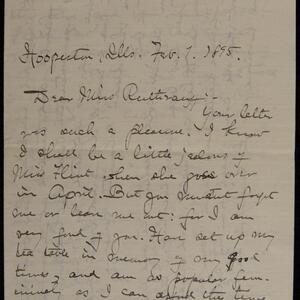 Hoopeston, Ills. Feb. 7. 1895.
Dear Miss Ruthrauff:-
Your letter
was such a pleasure. I know
I shall be a little jealous of
Miss Flint when she goes over
in April. But you mustnt forget
me or leave me out: for I am
very fond of you. Have set up my
tea table in memory of my good
times, and am as popular
as I can afford the time